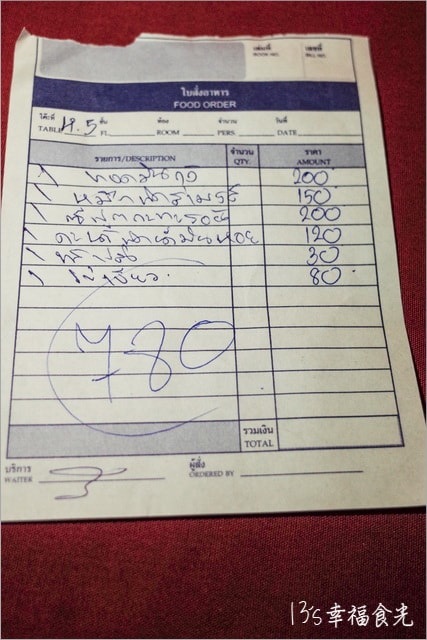 เล่มที่ เลขที่
BOOK NO. BILL NO.
ใบสั่งอาหาร
FOOD ORDER
โต๊ะที่ ชั้น ห้อง จำนวน วันที่
TABLE H.5 FL. ROOM PERS. DATE
รายการ/DESCRIPTION จำนวน QTY. ราคา AMOUNT
ทอดมันกุ้ง 200
150
200
คะน้าน้ำมันหอย 120
30
80
780
รวมเงิน
TOTAL
บริการ ผู้สั่ง
WAITER ORDERED BY
13's幸福食光